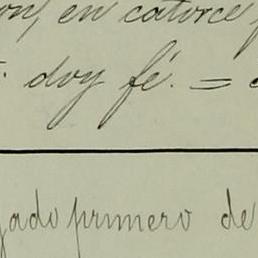 on, en catorce
doy fé. =
gado primero de